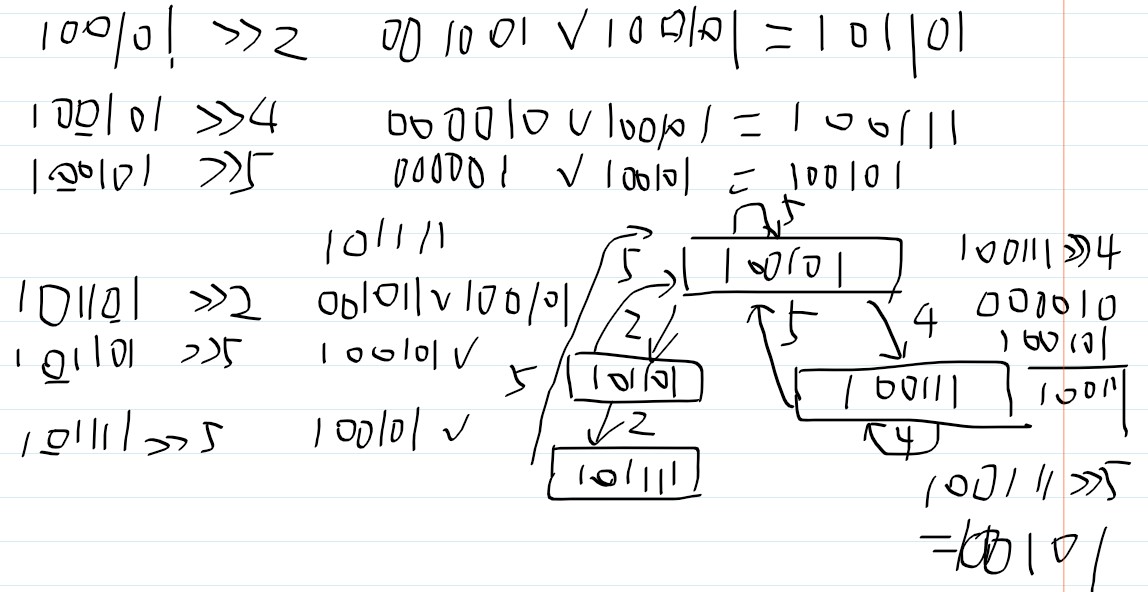 100101 >>2 001001 ∨ 100101 = 101101
100101 >>4 000010 ∨ 100101 = 100111
100101 >>5 000001 ∨ 100101 = 100101
101111
101101 >>2 001011 ∨ 100101
101101 >>5 100101 ✓
101111 >>5 100101 ✓
5
100101
5
2
5
4
101101
5
100111
2
4
101111
100111 >>4
000010
100101
100111
100111 >>5
=100101